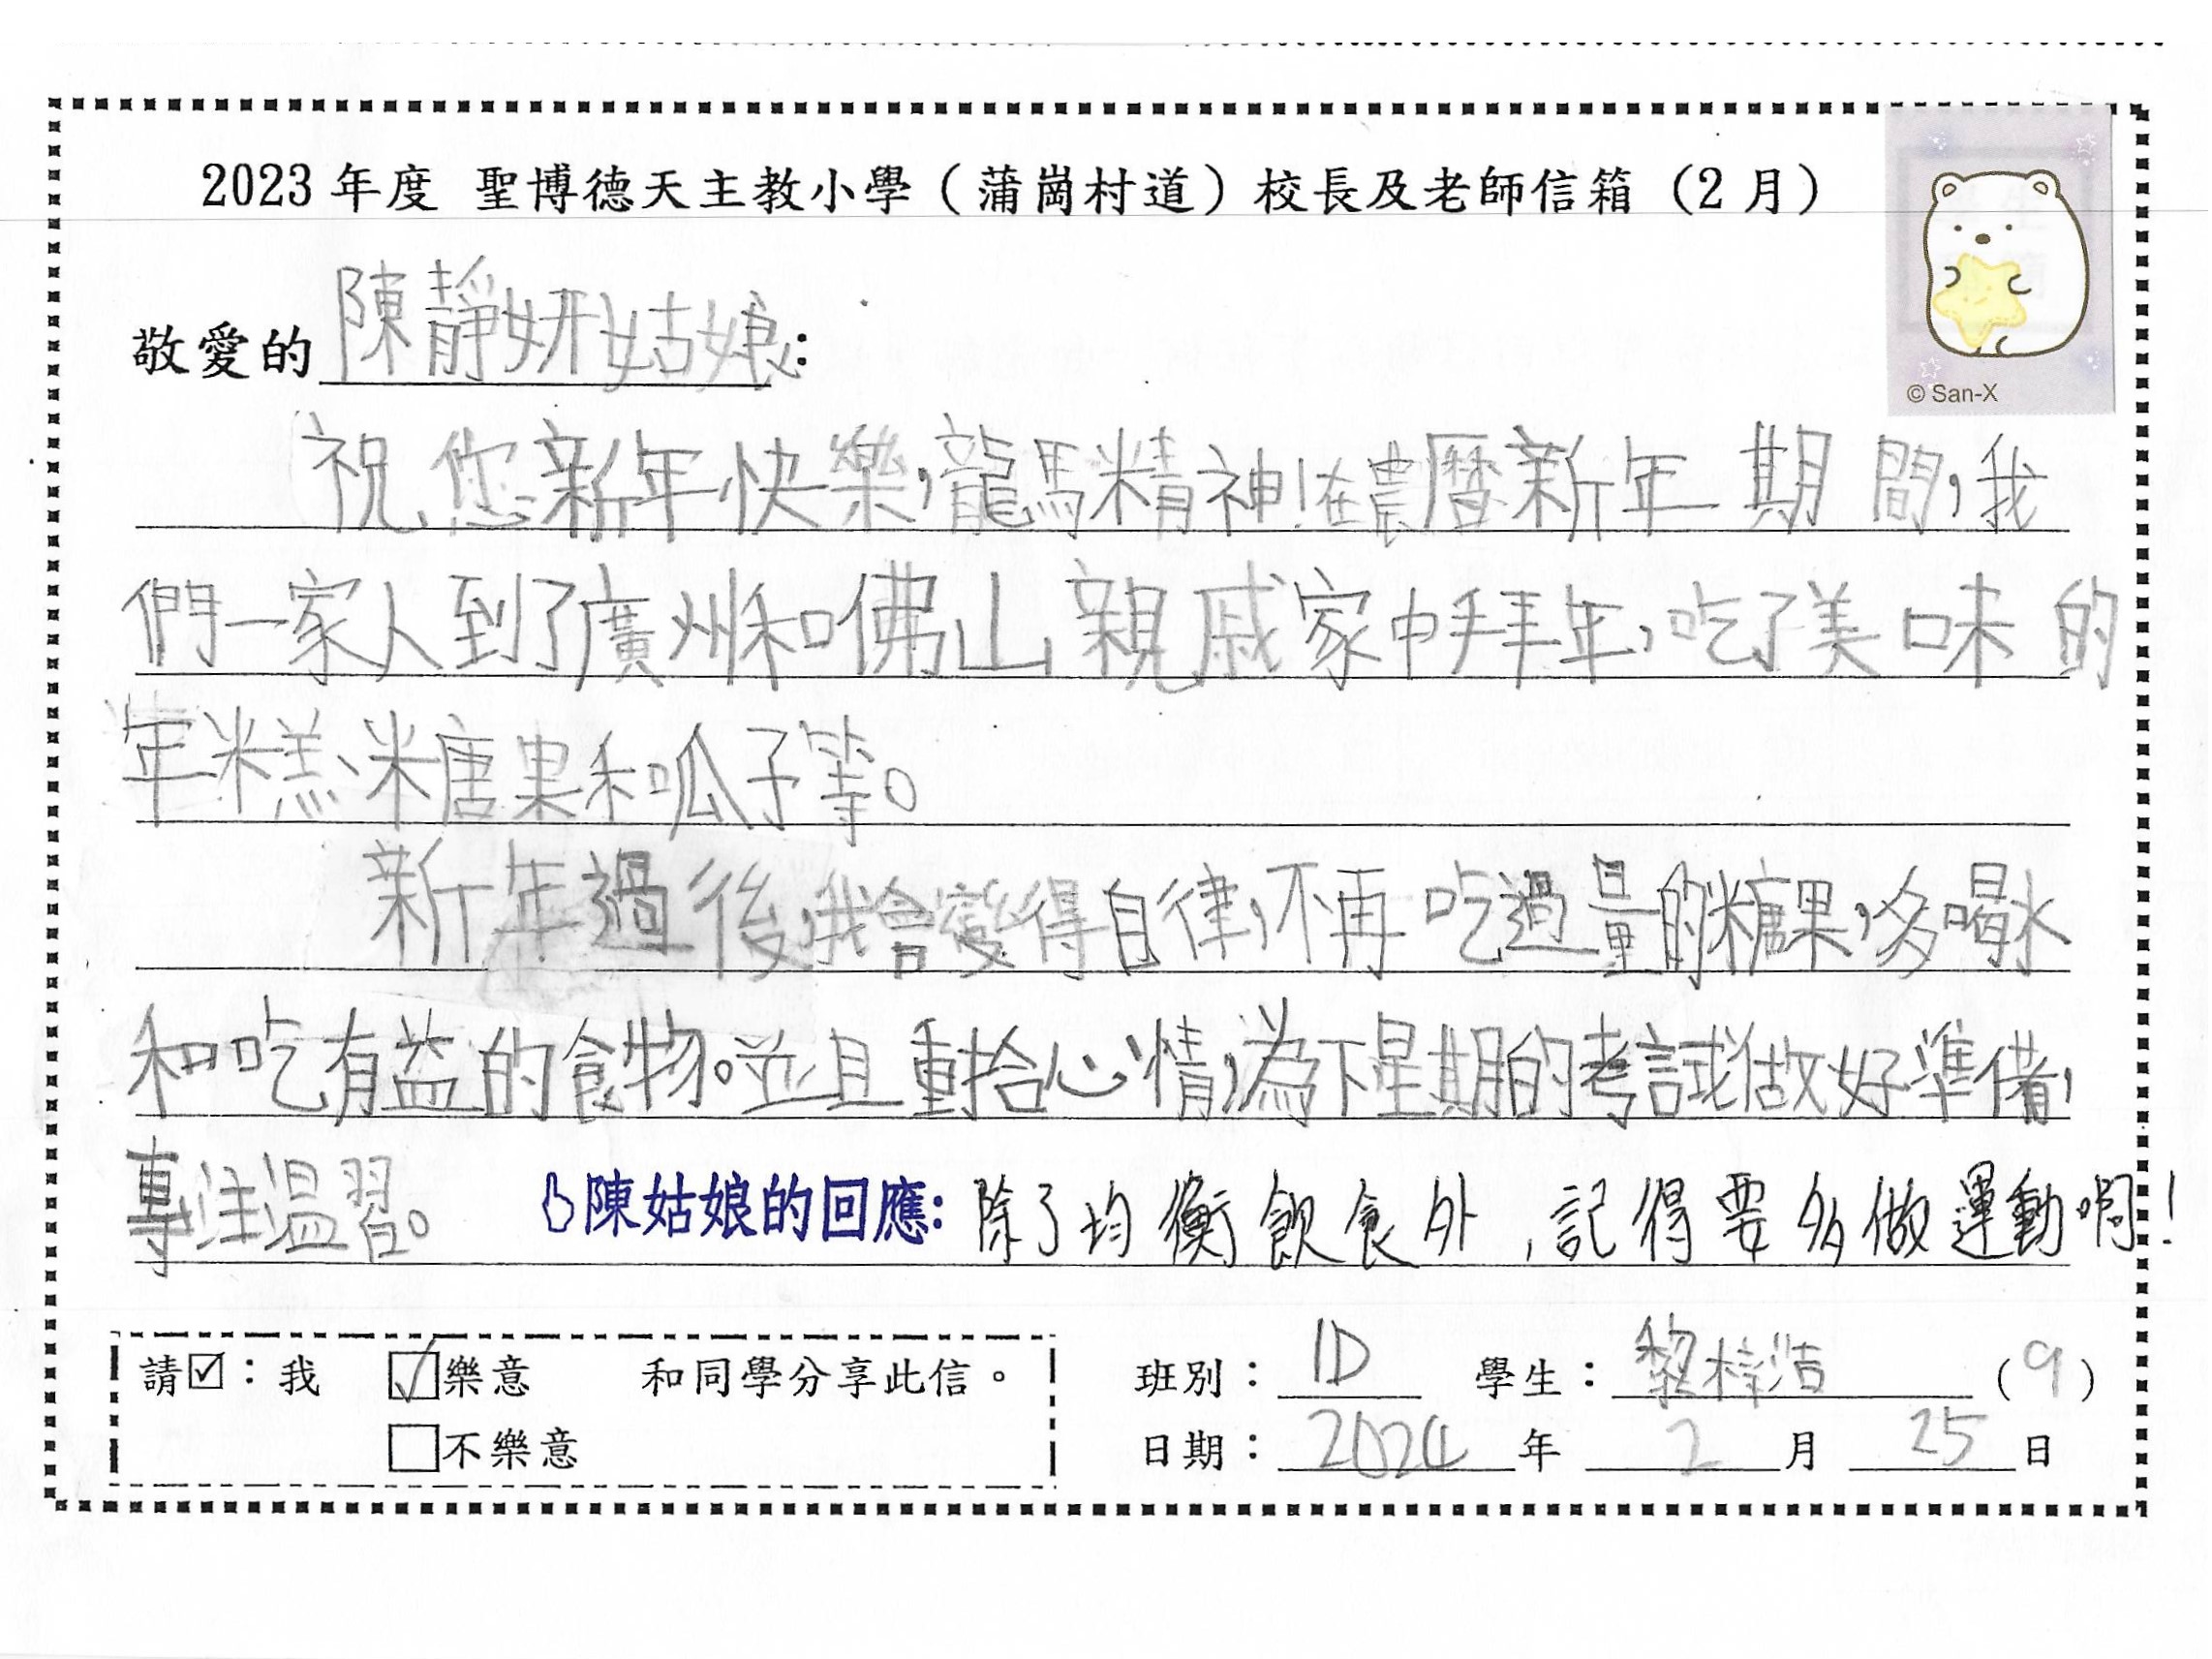 2023 年度 聖博德天主教小學（蒲崗村道）校長及老師信箱（2 月）
敬愛的陳靜妍姑娘：
© San-X
祝您新年快樂，龍馬精神！在農曆新年期間，我
們一家人到了廣州和佛山親戚家中拜年，吃了美味的
年糕、糖果和呱子等。
新年過後，我會變得自律，不再吃過量的糖果，多喝水
和吃有益的食物。並且重拾心情，為下星期的考試做好準備，
專注溫習。 陳姑娘的回應：除了均衡飲食外，記得要多做運動啊！
請☑：我 ☑樂意 和同學分享此信。
□不樂意
班別：1D 學生：黎梓浩（9）
日期：2024年2月25日